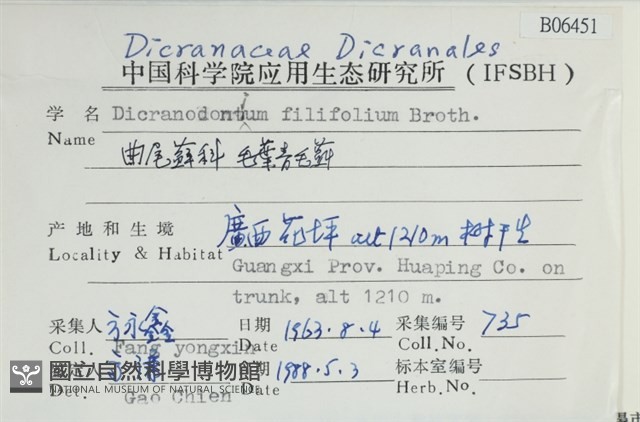 B06451
Dicranaceae Dicranales
中国科学院应用生态研究所 (IFSBH)
学名 Dicranodontium filifolium Broth.
Name
曲尾蘚科 毛葉青毛蘚
产地和生境 廣西花坪 alt 1210m 树干生
Locality & Habitat Guangxi Prov. Huaping Co. on
trunk, alt 1210 m.
采集人 方永鑫 日期 1963.8.4 采集编号 735
Coll. Fang yongxin Date Coll.No.
日期 1988.5.3 标本室编号
Det. Gao Chien Date Herb.No.
國立自然科學博物館
NATIONAL MUSEUM OF NATURAL SCIENCE